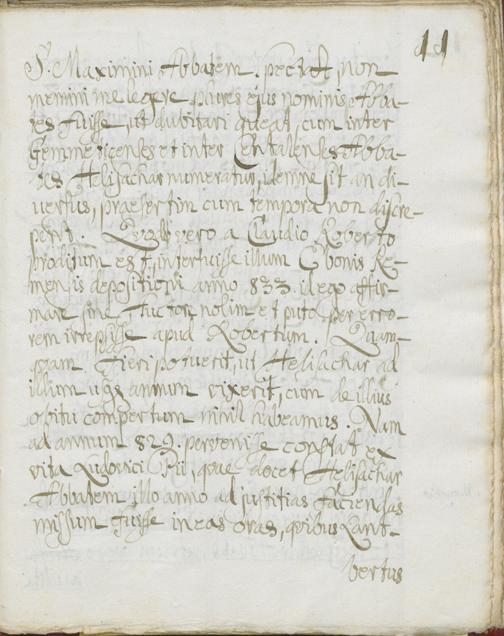 11
S. Maximini Abbatem. pectat, non
memini me legere plures ejus nominis Abba-
tes fuisse, ut dubitari queat, cum inter
Gemmeticenses et inter Centulenses Abba-
tes Helisachar numeratur, idemne sit an di-
versus, praesertim cum tempora non discre-
pent. Quod vero a Claudio Roberto
proditum est, interfuisse illum Ebonis Re-
mensis depositioni anno 833. id ego affir-
mare sine Auctore nolim et puto per erro-
rem irrepsisse apud Robertum. Quam-
quam fieri potuerit, ut Helisachar ad
illum usq annum vixerit, cum de illius
obitu compertum nihil habeamus. Nam
ad annum 829. pervenisse constat ex
vita Ludovici Pii, quae docet Helisachar
Abbatem illo anno ad justitias faciendas
missum fuisse in eas oras, quibus Lant-
bertus